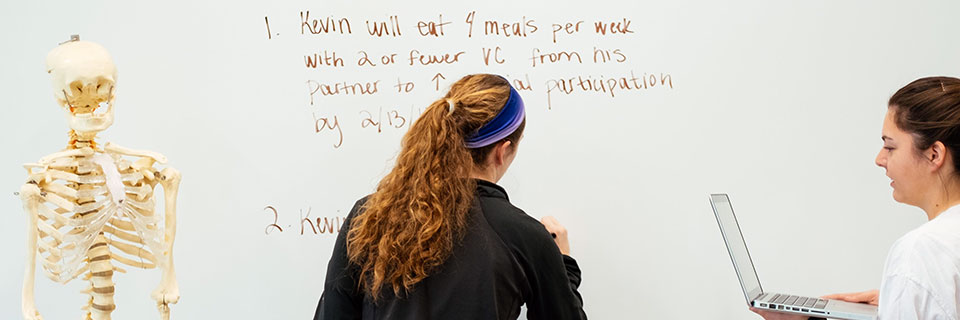 1. Kevin will eat 4 meals per week
with 2 or fewer VC from his
partner to ↑ participation
by 2/13/
2. Kevin